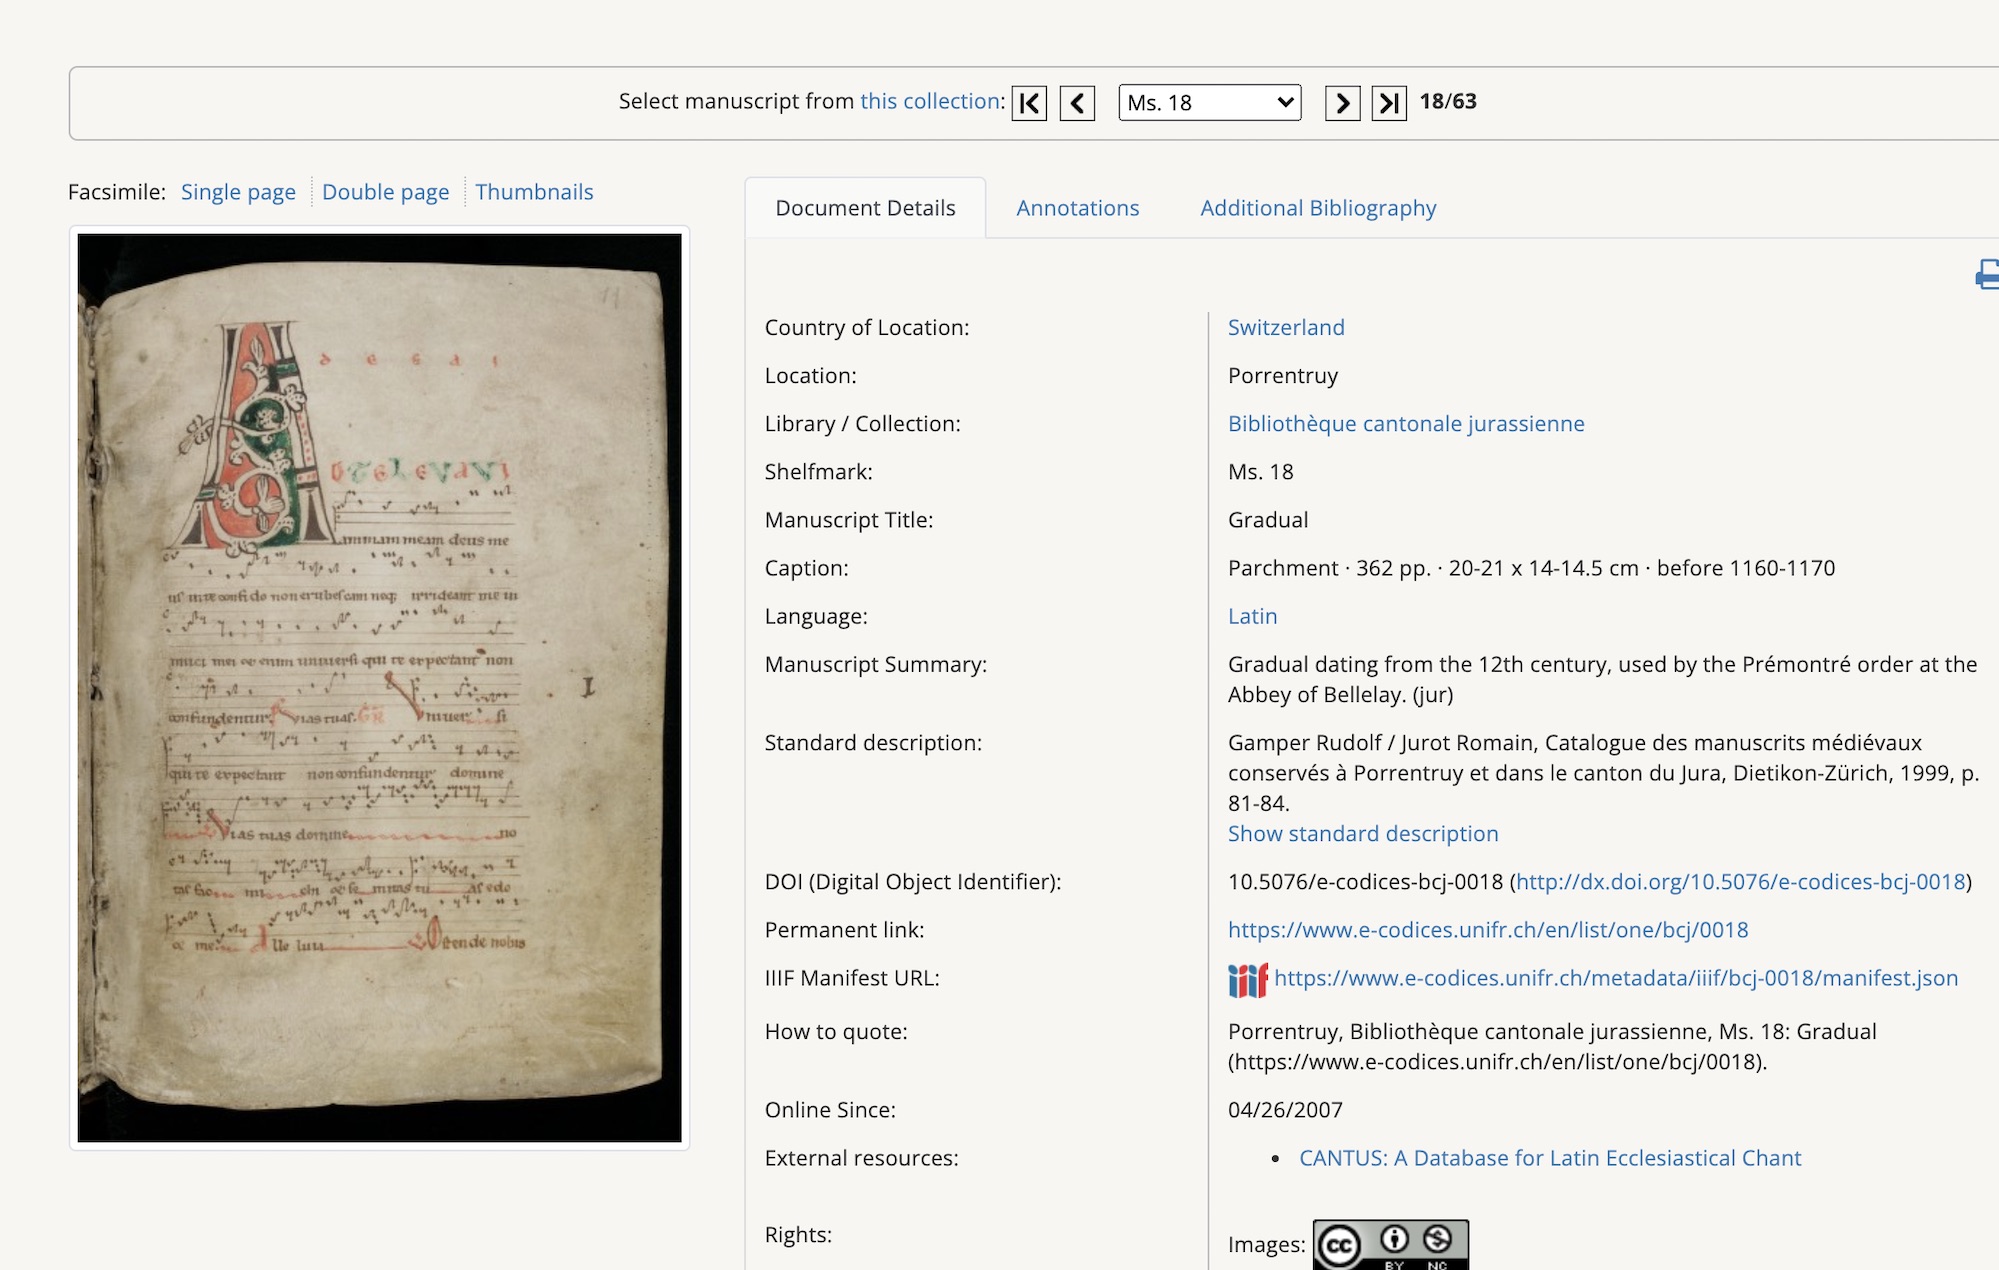 Select manuscript from this collection: Ms. 18 18/63
Facsimile: Single page Double page Thumbnails
Document Details Annotations Additional Bibliography
Country of Location: Switzerland
Location: Porrentruy
Library / Collection: Bibliothèque cantonale jurassienne
Shelfmark: Ms. 18
Manuscript Title: Gradual
Caption: Parchment · 362 pp. · 20-21 x 14-14.5 cm · before 1160-1170
Language: Latin
Manuscript Summary: Gradual dating from the 12th century, used by the Prémontré order at the
Abbey of Bellelay. (jur)
Standard description: Gamper Rudolf / Jurot Romain, Catalogue des manuscrits médiévaux
conservés à Porrentruy et dans le canton du Jura, Dietikon-Zürich, 1999, p.
81-84.
Show standard description
DOI (Digital Object Identifier): 10.5076/e-codices-bcj-0018 (http://dx.doi.org/10.5076/e-codices-bcj-0018)
Permanent link: https://www.e-codices.unifr.ch/en/list/one/bcj/0018
IIIF Manifest URL: iiif https://www.e-codices.unifr.ch/metadata/iiif/bcj-0018/manifest.json
How to quote: Porrentruy, Bibliothèque cantonale jurassienne, Ms. 18: Gradual
(https://www.e-codices.unifr.ch/en/list/one/bcj/0018).
Online Since: 04/26/2007
External resources: CANTUS: A Database for Latin Ecclesiastical Chant
Rights: Images: cc BY NC
11
A
animam meam deus me
us in te confido non erubescam neq; irrideant me in
imici mei et enim universi qui te expectant non
confundentur. Vias tuas. GR Universi
qui te expectant non confundentur domine
Vias tuas domine no
et me Alle luia Ostende nobis
I